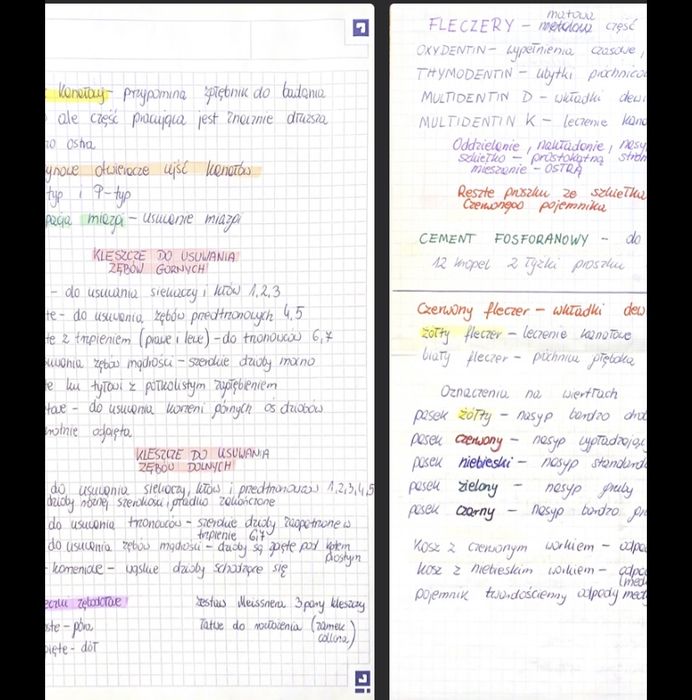 kanałowy - przypomina zgłębnik do badania
ale część pracująca jest znacznie dłuższa
ostra
ynowe otwieracze ujść kanałów
typ i P-typ
pacja miazgi - usuwanie miazgi
KLESZCZE DO USUWANIA
ZĘBÓW GÓRNYCH
- do usuwania siekaczy i kłów 1,2,3
te - do usuwania zębów przedtrzonowych 4,5
te z trzpieniem (prawe i lewe) - do trzonowców 6,7
uwania zębów mądrości - szerokie dzioby mocno
e ku tyłowi z półkolistym zagłębieniem
towe - do usuwania korzeni górnych oś dziobów
odgięta
KLESZCZE DO USUWANIA
ZĘBÓW DOLNYCH
do usuwania siekaczy, kłów i przedtrzonowców 1,2,3,4,5
dzioby różnej szerokości gładko zakończone
do usuwania trzonowców - szerokie dzioby zaopatrzone w
trzpienie 6,7
do usuwania zębów mądrości - dzioby są zgięte pod kątem
prostym
- korzeniowe - wąskie dzioby schodzące się
zestaw Meissnera 3 pary kleszczy
ste - góra
łatwe do rozłożenia (zamek
collina)
gięte - dół
FLECZERY - matowa część
OXYDENTIN - wypełnienia czasowe,
THYMODENTIN - ubytki próchnico
MULTIDENTIN D - wkładki dew
MULTIDENTIN K - leczenie kana
Oddzielanie, nakładanie, nasy
szkiełko - prostokątną stron
mieszanie - OSTRĄ
Resztę proszku ze szkiełka
Czerwonego pojemnika
CEMENT FOSFORANOWY - do
12 kropel 2 łyżki proszku
Czerwony fleczer - wkładki dew
żółty fleczer - leczenie kanałowe
biały fleczer - próchnica głęboka
Oznaczenia na wiertłach
pasek żółty - nasyp bardzo dro
pasek czerwony - nasyp wygładzając
pasek niebieski - nasyp standardo
pasek zielony - nasyp gruby
pasek czarny - nasyp bardzo gru
Kosz z czerwonym workiem - odpa
Kosz z niebieskim workiem - odpa
(med
pojemnik twardościenny odpady med